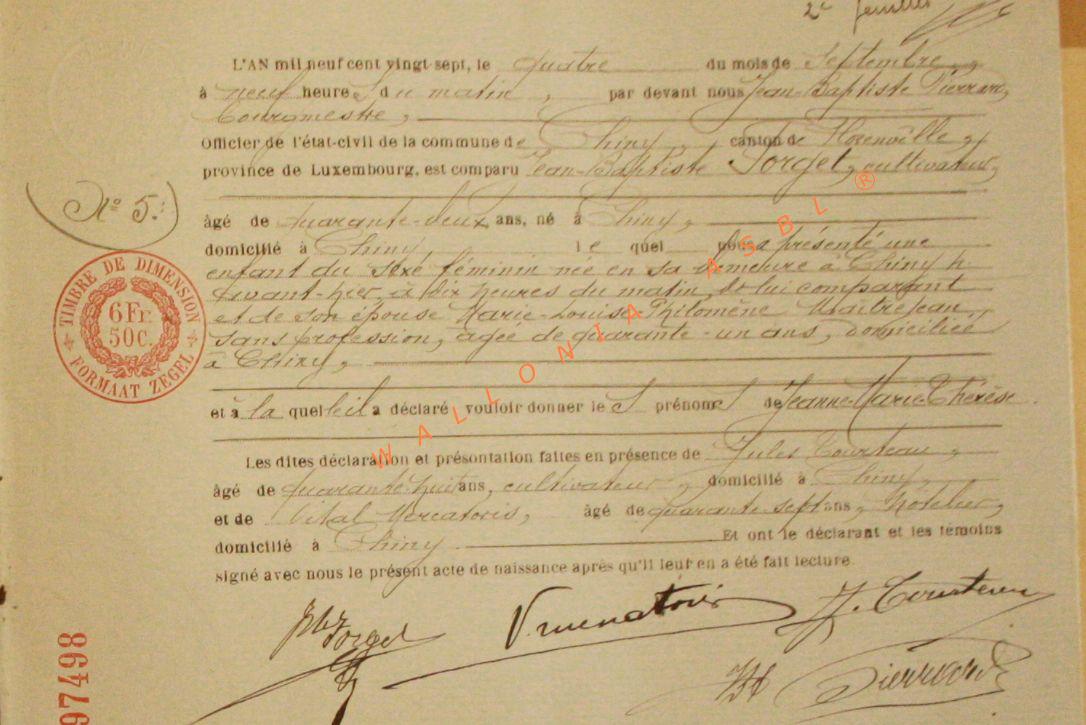 2e feuillet
L'AN mil neuf cent vingt-sept, le quatre du mois de Septembre,
à neuf heures du matin, par devant nous Jean-Baptiste Pierrard,
Bourgmestre,
Officier de l'état-civil de la commune de Chiny, canton de Florenville,
province de Luxembourg, est comparu Jean-Baptiste Jorget, cultivateur,
âgé de quarante-deux ans, né à Chiny,
domicilié à Chiny lequel nous a présenté une
enfant du sexe féminin née en sa demeure à Chiny
avant-hier, à dix heures du matin, de lui comparant
et de son épouse Marie-Louise Philomène Maitrejean
sans profession, âgée de quarante-un ans, domiciliée
à Chiny,
et à laquelle il a déclaré vouloir donner les prénoms de Jeanne-Marie-Thérèse.
Les dites déclaration et présentation faites en présence de Jules Tourteau,
âgé de quarante-huit ans, cultivateur, domicilié à Chiny,
et de Vital Mercatoris, âgé de quarante-sept ans, hôtelier,
domicilié à Chiny Et ont le déclarant et les témoins
signé avec nous le présent acte de naissance après qu'il leur en a été fait lecture.
Jorget
V. Mercatoris
J. Tourteau
Pierrard
No 5.
TIMBRE DE DIMENSION
6 Fr.
50 C.
FORMAAT ZEGEL
97498
WALLONIA ASBL ®